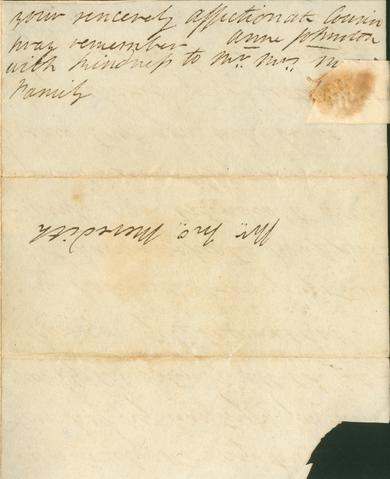 your sincerely affectionate Cousin
may remember anne Johnston
with kindness to Mr. Mrs. M
Family
Mr. Meredith